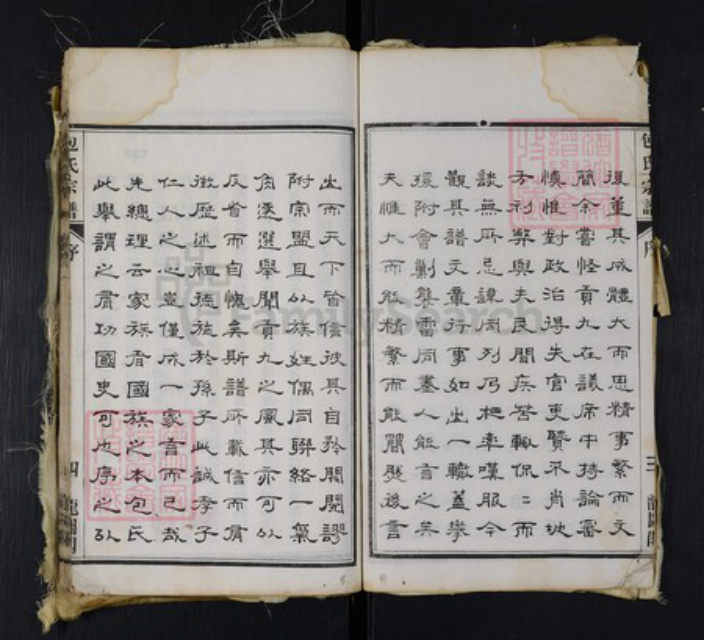 包氏宗譜
序
復董其成體大而思精事繁而文
簡余嘗怪貢九在議席中持論審
慎惟對政治得失官吏賢不肖地
方利弊與夫民間疾苦輒侃二而
談無所忌諱同列乃相率嘆服今
觀其譜文章行事如出一轍蓋摹
援附會剿襲雷同盡人能言之矣
夫惟大而能精繁而能簡然後言
三
出而天下皆信彼具自矜閥閱謬
附宗盟且以族姓偶同聯絡一氣
濟選舉聞貢九之風其亦可以
反省而自愧矣斯譜所載信而有
徵歷述祖德施於孫子此誠孝子
仁人之心豈僅成一家言而已哉
先總理云家族者國族之本包氏
此舉謂之有功國史可也序之以
包氏宗譜
序
四
familysearch